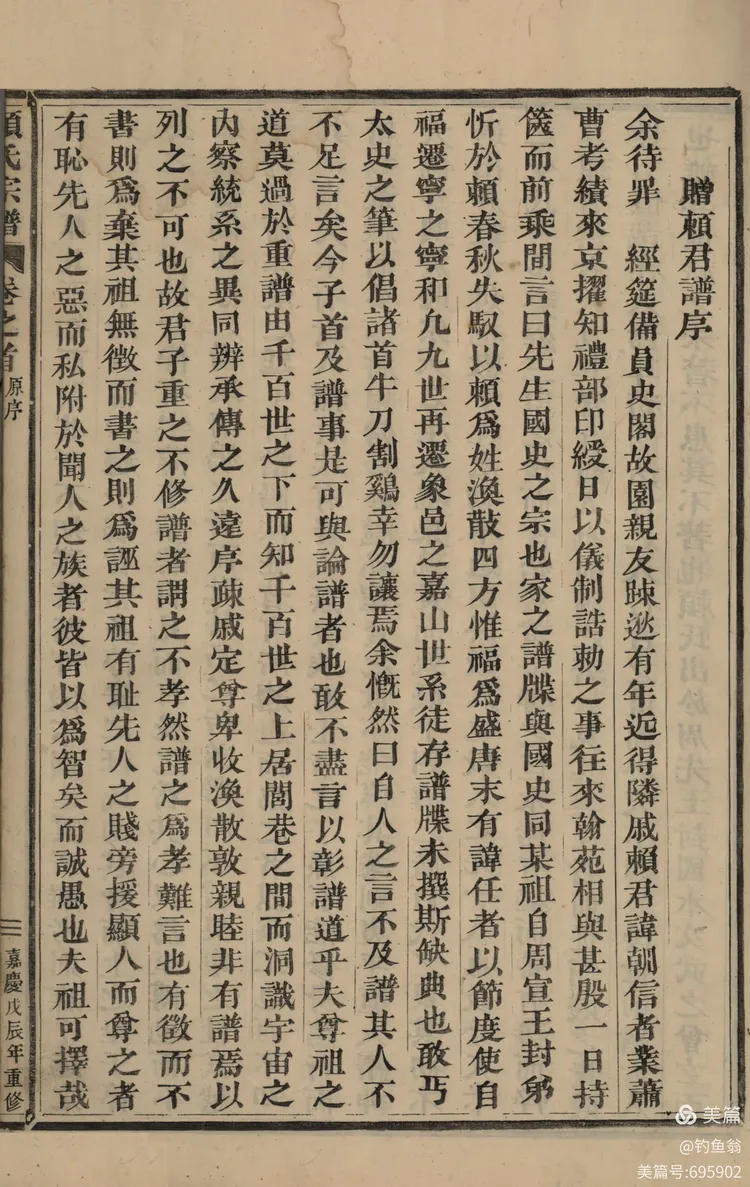 贈賴君譜序
余待罪　經筵備員史閣故園親友踈逖有年近得隣戚賴君諱朝信者業蕭
曹考績來京擢知禮部印綬日以儀制誥勅之事往來翰苑相與甚殷一日持
篋而前乘間言曰先生國史之宗也家之譜牒與國史同某祖自周宣王封
忻於賴春秋失馭以賴爲姓渙散四方惟福爲盛唐末有諱任者以節度使自
福遷寧之寧和凢九世再遷象邑之嘉山世系徒存譜牒未撰斯缺典也敢丐
太史之筆以倡諸首牛刀割鷄幸勿讓焉余慨然曰自人之言不及譜其人不
不足言矣今子首及譜事是可與論譜者也敢不盡言以彰譜道乎夫尊祖之
道莫過於重譜由千百世之下而知千百世之上居閭巷之間而洞識宇宙之
內察統系之異同辨承傳之久遠序疎戚定尊卑收渙散敦親睦非有譜焉以
列之不可也故君子重之不修譜者謂之不孝然譜之爲孝難言也有徵而不
書則爲棄其祖無徵而書之則爲誣其祖有耻先人之賤旁援顯人而尊之者
有恥先人之惡而私附於聞人之族者彼皆以爲智矣而誠愚也夫祖可擇哉
賴氏宗譜
卷之首 原序
嘉慶戊辰年重修
美篇
@钓鱼翁
美篇号:695902